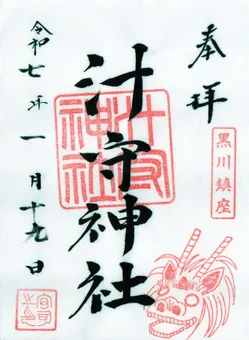 奉拝
黒川鎮座
汁守神社
汁守神社
令和七年一月十九日
宮司之印